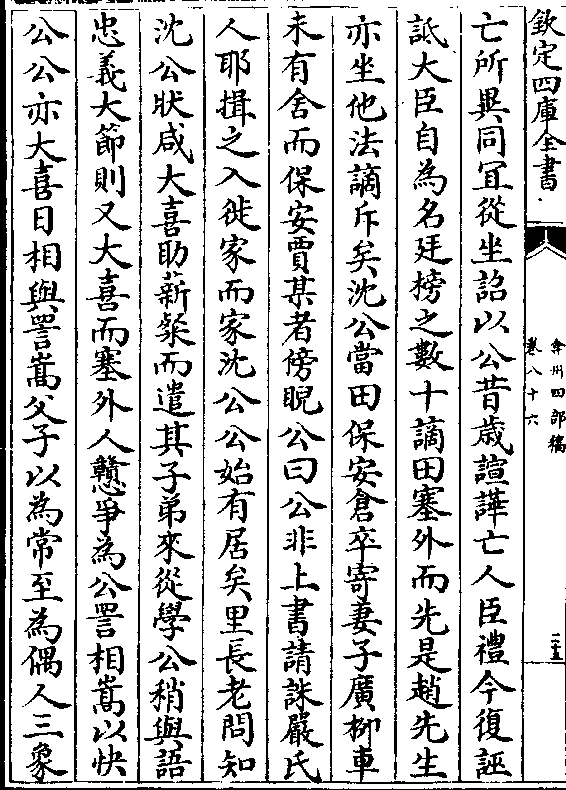 欽定四庫全書
弇州四部稿
卷八十六
二五
亡所異同冝從坐詔以公昔歳諠譁亡人臣禮今復誣
詆大臣自為名廷榜之數十謫田塞外而先是趙先生
亦坐他法謫斥矣沈公當田保安倉卒寄妻子廣栁車
未有舍而保安賈某者傍睨公曰公非上書請誅嚴氏
人耶揖之入徙家而家沈公公始有居矣里長老問知
沈公狀咸大喜助薪粲而遣其子弟來從學公稍與語
忠義大節則又大喜而塞外人戇爭為公詈相嵩以快
公公亦大喜日相與詈嵩父子以為常至為偶人三象